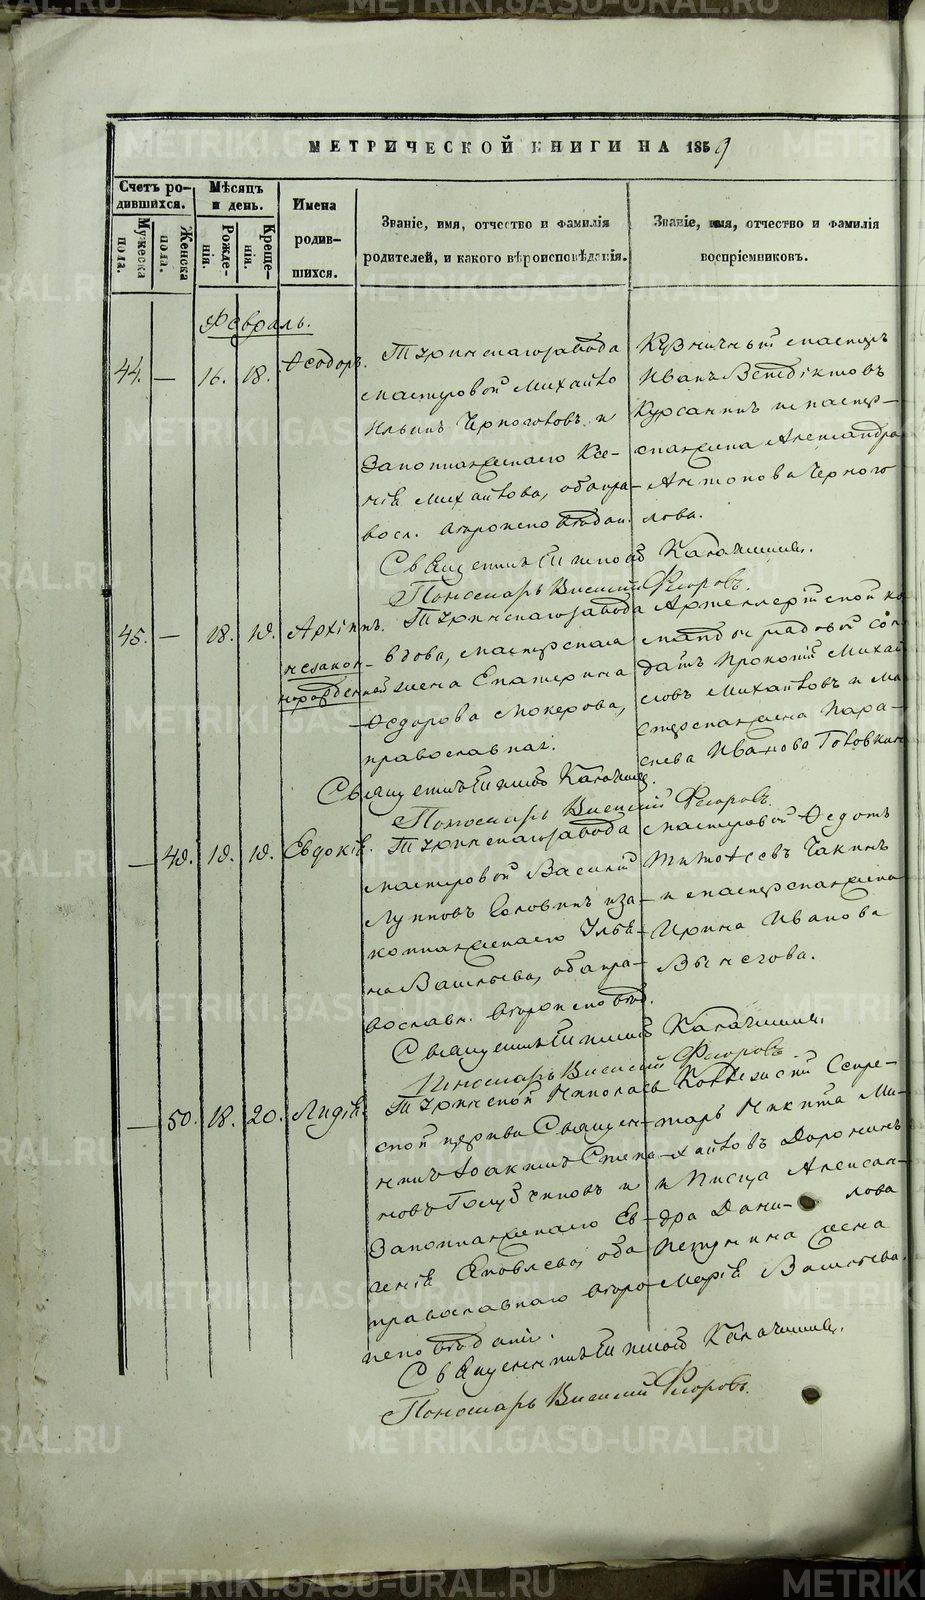 МЕТРИЧЕСКОЙ КНИГИ НА 1859
Счетъ ро-
дившихся.
Мужеска
пола.
Женска
пола.
Мѣсяцъ
и день.
Рожде-
нія.
Креще-
нія.
Имена
родив-
шихся.
Званіе, имя, отчество и фамилія
родителей, и какого вѣроисповѣданія.
Званіе, имя, отчество и фамилія
воспріемниковъ.
Февраль.
44. — 16. 18. Ѳеодоръ.
Туринскаго завода
мастеровой Михайло
Ильинъ Черноголовъ и
Законная жена его Ксе-
нія Михайлова, оба пра-
восл.
Кузничный мастеръ
Иванъ Венедиктовъ
Курсанинъ и мастер-
ская жена Александра
Антонова Черного
лова.
Священникъ Калачниковъ.
Пономарь Василій Флоровъ.
45. — 18. 19. Архиппъ.
незакон-
норожденный
Туринскаго завода
вдова, мастерская
жена Екатерина
Ѳедорова Мокерова,
православная.
Артиллерійской ко
манды рядовой сол
датъ Прокопій Михай
ловъ Михайловъ и ма
стерская жена Пара-
скева Иванова Головкин
Священникъ Калачник.
Пономарь Василій Флоровъ.
— 49. 19. 19. Евдокія.
Туринскаго завода
мастеровой Василій
Лупповъ Головинъ и за
конная жена его Улья-
на Васильева, оба пра-
вославн. вѣроисповѣд.
мастеровой Ѳедотъ
Тимоѳеевъ Чакинъ
и мастерская жена
Ирина Иванова
Вычегова.
Священникъ Калачников.
Пономарь Василій Флоровъ.
— 50. 18. 20. Лидія.
Туринской Николаев
ской церкви Священ-
никъ Іоакимъ Степа-
новъ Голубчиковъ и
Законная жена его Ев-
генія Яковлева, оба
православнаго вѣро
исповѣданія.
Коллежскій Секре-
тарь Никита Ми-
хайловъ Доронинъ
и Писца Алексан-
дра Дани- лова
Петунина жена
Марія Васильева.
Священникъ Калачников.
Пономарь Василій Флоровъ.
METRIKI.GASO-URAL.RU